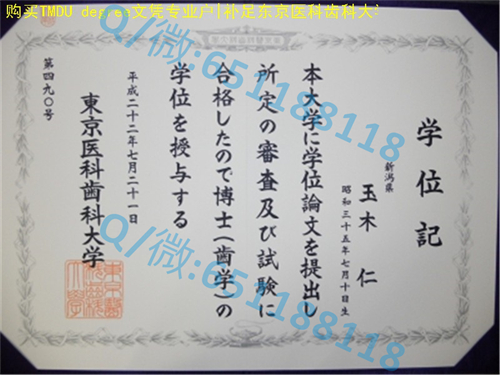 购买TMDU degree文凭专业户|补足东京医科齿科大
学位記
新潟県
玉木 仁
昭和三十五年七月十日生
本大学に学位論文を提出し
所定の審査及び試験に
合格したので博士(歯学)の
学位を授与する
平成二十二年七月二十一日
東京医科歯科大学
第四九〇号
Q/微:651188118
Q/微:651188118